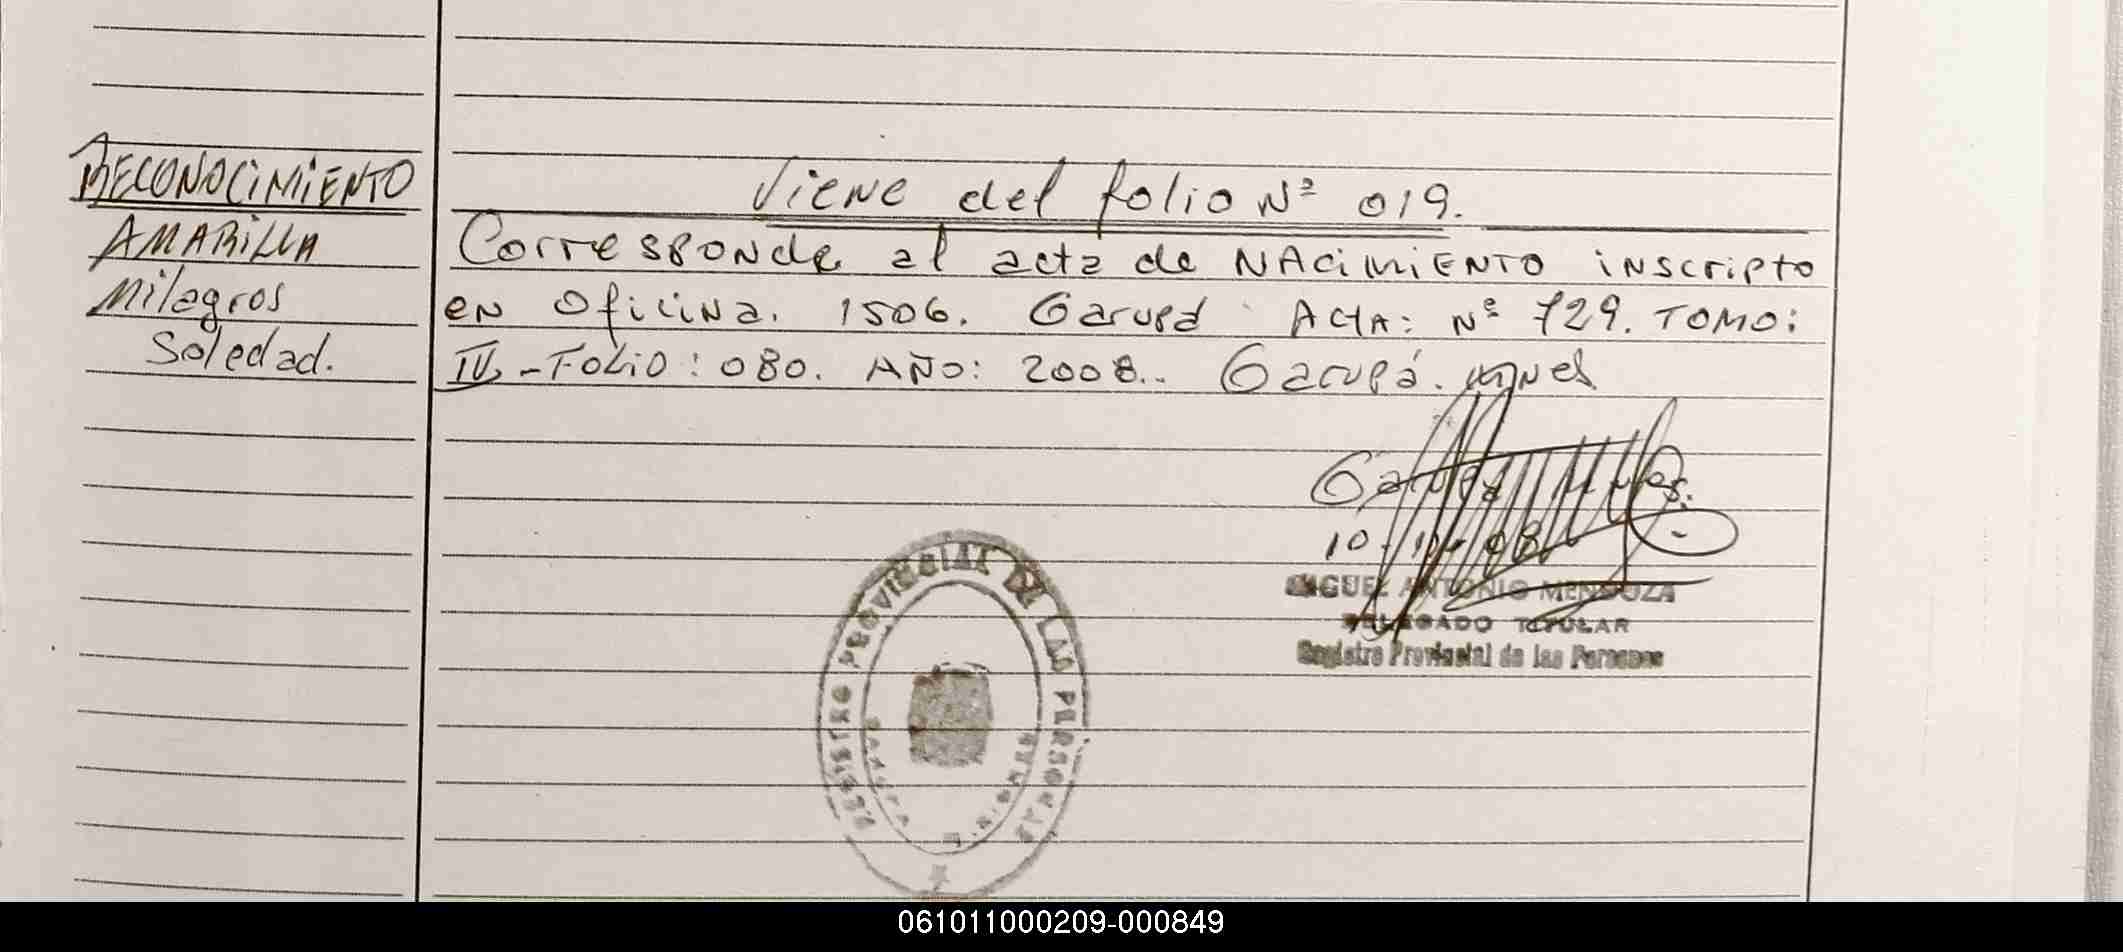 RECONOCIMIENTO
AMARILLA
Milagros
Soledad.
Viene del folio Nº 019.
Corresponde al acta de NACIMIENTO inscripto
en Oficina. 1506. Garupá ACTA: Nº 729. TOMO:
IV - FOLIO: 080. AÑO: 2008.. Garupá.
Garupá
10 08
MIGUEL ANTONIO MENDOZA
DELEGADO TITULAR
Registro Provincial de las Personas
REGISTRO PROVINCIAL DE LAS PERSONAS
GARUPA
061011000209-000849